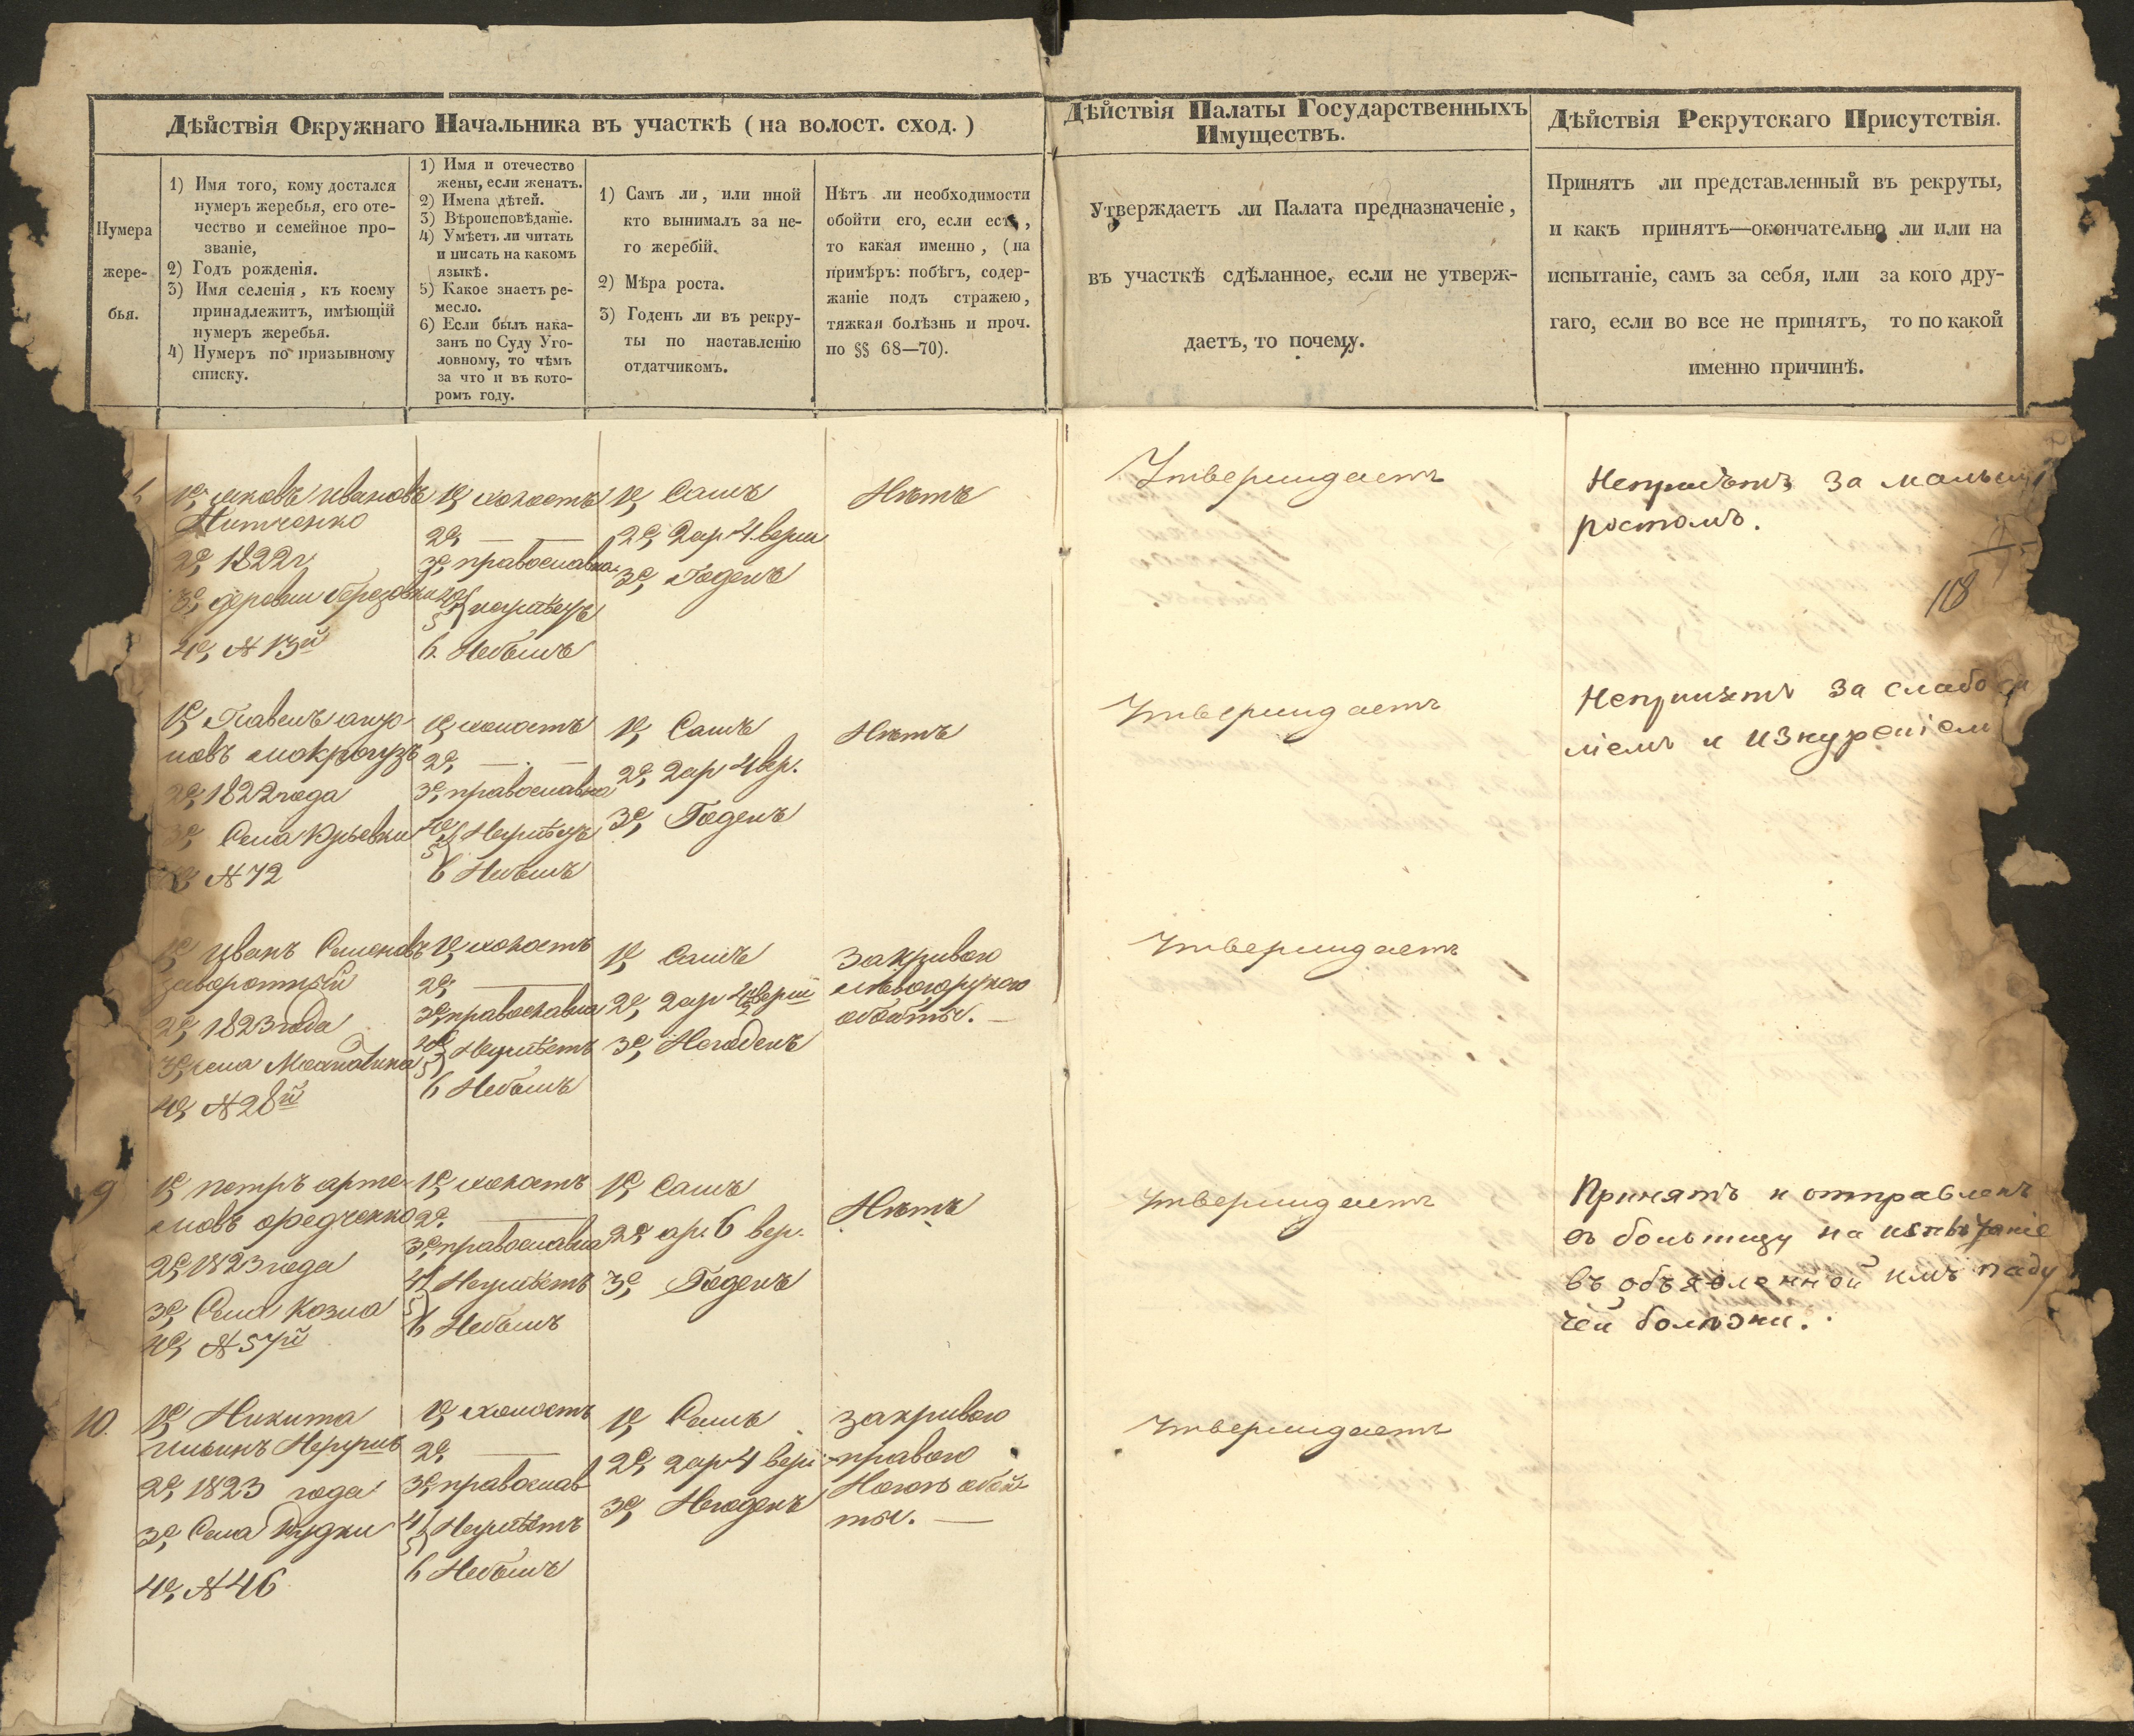 Дѣйствія Окружнаго Начальника въ участкѣ (на волост. сход.)
Нумера
жере-
бья.
1) Имя того, кому достался
нумеръ жеребья, его оте-
чество и семейное про-
званіе,
2) Годъ рожденія.
3) Имя селенія, къ коему
принадлежитъ, имѣющій
нумеръ жеребья.
4) Нумеръ по призывному
списку.
1) Имя и отечество
жены, если женатъ.
2) Имена дѣтей.
3) Вѣроисповѣданіе.
4) Умѣетъ ли читать
и писать на какомъ
языкѣ.
5) Какое знаетъ ре-
месло.
6) Если былъ нака-
занъ по Суду Уго-
ловному, то чѣмъ
за что и въ кото-
ромъ году.
1) Самъ ли, или иной
кто вынималъ за не-
го жеребій.
2) Мѣра роста.
3) Годенъ ли въ рекру-
ты по наставленію
отдатчикомъ.
Нѣтъ ли необходимости
обойти его, если есть,
то какая именно, (на
примѣръ: побѣгъ, содер-
жаніе подъ стражею,
тяжкая болѣзнь и проч.
по §§ 68—70).
Дѣйствія Палаты Государственныхъ
Имуществъ.
Утверждаетъ ли Палата предназначеніе,
въ участкѣ сдѣланное, если не утверж-
даетъ, то почему.
Дѣйствія Рекрутскаго Присутствія.
Принятъ ли представленный въ рекруты,
и какъ принятъ—окончательно ли или на
испытаніе, самъ за себя, или за кого дру-
гаго, если во все не принятъ, то по какой
именно причинѣ.
1е, Ивановъ
2е, 1822 г
3е, деревни
4е, N 13й
1е, холостъ
2е, — —
3е, православна
4е
5
6. Небылъ
1е, Самъ
2е, 2 ар 4 верш
3е, Годенъ
Нѣтъ
Утверждаетъ
Непринятъ за малым
ростомъ.
118
1е, Павелъ
2е, 1822 года
3е, Села Юрьевки
N 72
1е, холостъ
2е, — . —
3е, православна
4е
5
6 Небылъ
1е, Самъ
2е, 2 ар 4 вер.
3е, Годенъ
Нѣтъ
Утверждаетъ
Непринятъ за слабоси
ліемъ и изнуреніем
1е, Иванъ Семеновъ
2е, 1823 года
3е, села
4е, N 28й
1е, холостъ
2е, ——
3е, православна
4е
5 Неумѣетъ
6 Небылъ
1е, Самъ
2е, 2 ар верш
3е, Негоденъ
За кривою
лѣвою рукою
обойти. —
Утверждаетъ
9
1е, Петръ арте-
мовъ федченко
2е, 1823 года
3е, Села Козла
4е, N 57й
1е, холостъ
2е. ——
3е, православна
4
5 Неумѣетъ
6 Небылъ
1е, Самъ
2е, ар. 6 вер.
3е, Годенъ
Нѣтъ
Утверждаетъ
Принятъ и отправленъ
въ больницу на испытаніе
въ объявленной имъ паду
чей болѣзни.
10.
1е, Никита
2е, 1823 года
3е, Села Рудки
4е, N 46
1е, холостъ
2е, ——
3е, православ
4
5 Неумѣетъ
6 Небылъ
1е, Самъ
2е, 2 ар 4 верш
3е, Негоденъ
за кривою
правою
Ногою обой
ти. —
Утверждаетъ